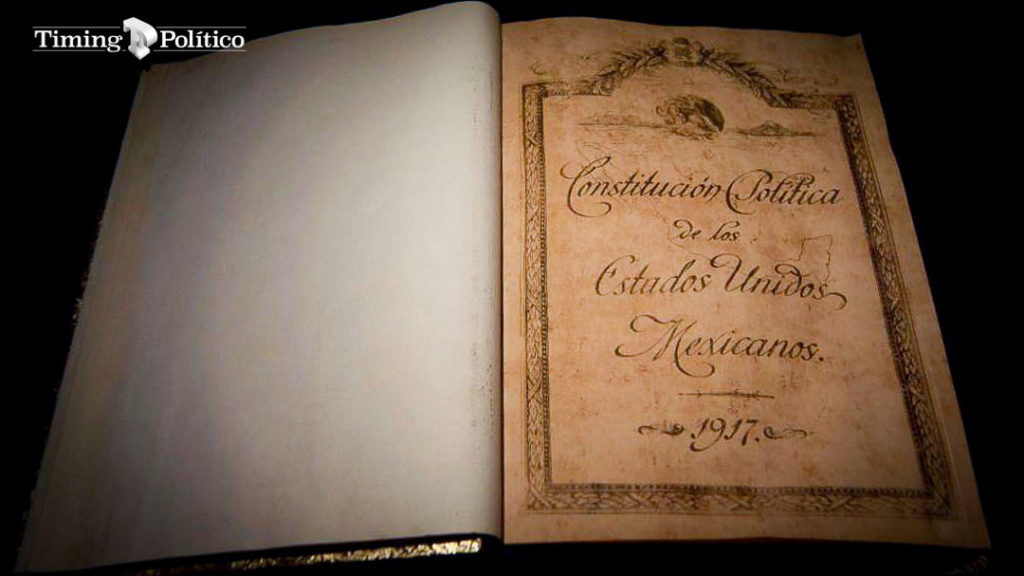 Timing Político
Constitución Política
de los
Estados Unidos
Mexicanos.
1917.